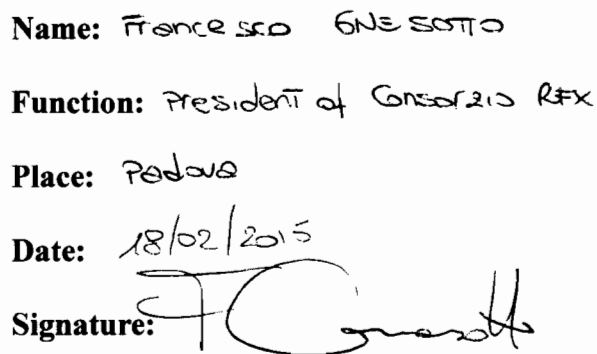 Name: Francesco GNESOTTO
Function: President of Consorzio RFX
Place: Padova
Date: 18/02/2015
Signature: F Gnesotto